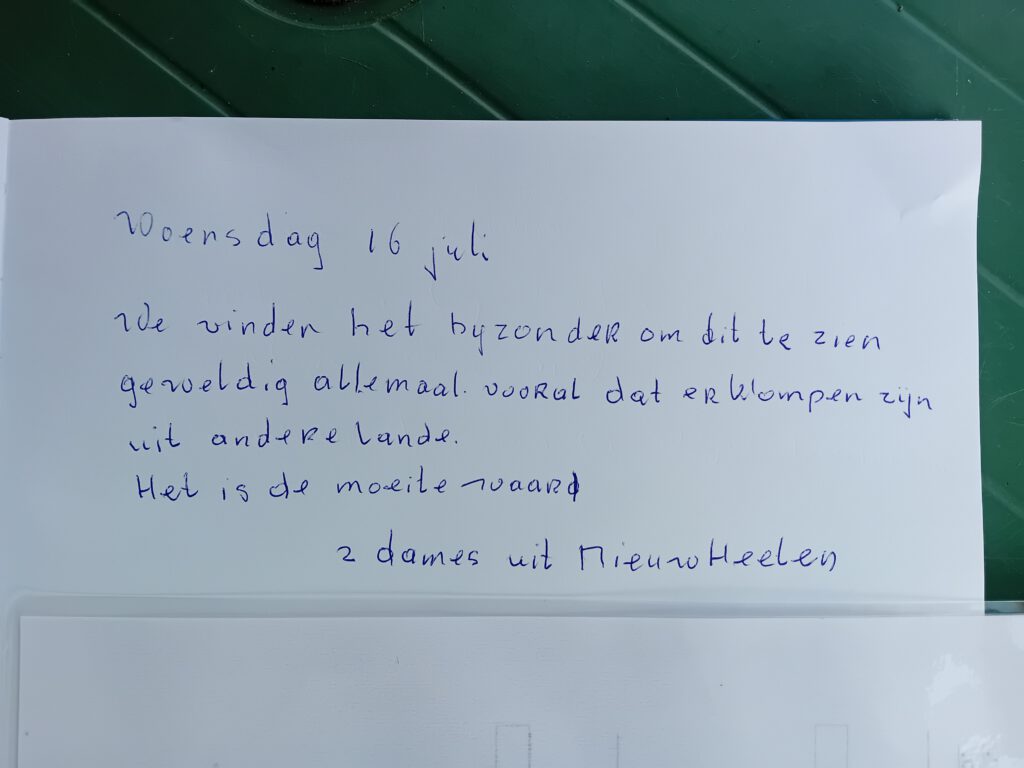 Woensdag 16 juli
We vinden het byzonder om dit te zien
geweldig allemaal. vooral dat er klompen zijn
uit andere lande.
Het is de moeite waard
2 dames uit Nieuw Heelen